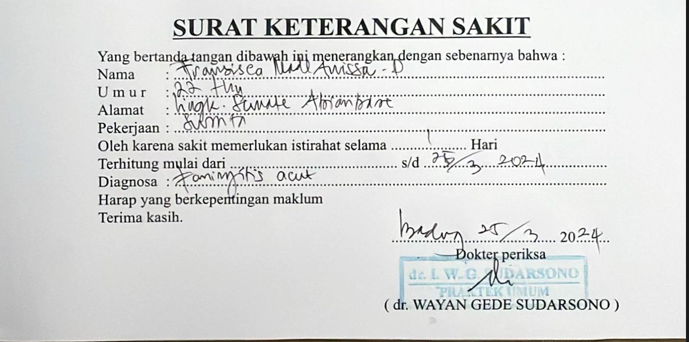 SURAT KETERANGAN SAKIT
Yang bertanda tangan dibawah ini menerangkan dengan sebenarnya bahwa :
Nama : Fransisca
Umur : 22 thn
Alamat : Lingk.
Pekerjaan :
Oleh karena sakit memerlukan istirahat selama 1 Hari
Terhitung mulai dari s/d 25/3 2024
Diagnosa : Faringitis acut
Harap yang berkepentingan maklum
Terima kasih.
Badung 25/3 2024
Dokter periksa
dr. I. W. G. SUDARSONO
PRAKTEK UMUM
( dr. WAYAN GEDE SUDARSONO )